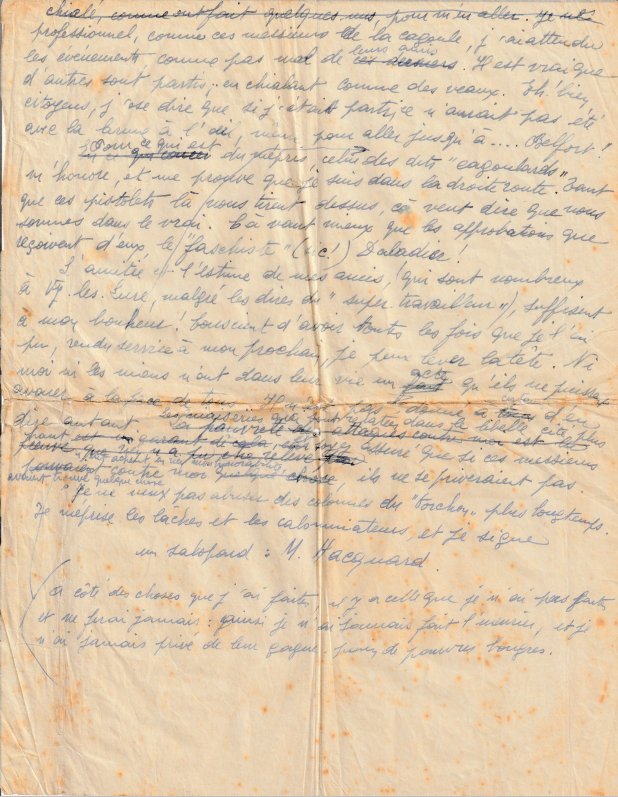 chialé, comme ont fait quelques uns, pour m'en aller. Je suis
professionnel, comme ces messieurs de la cagoule, j'ai attendu
les événements comme pas mal de ces derniers leurs amis. Il est vrai que
d'autres sont partis en chialant comme des veaux. Eh! bien,
citoyens, j'ose dire que si j'étais parti, ce n'aurait pas été
avec la larme à l'œil, même pour aller jusqu'à.... Belfort!
Pour ce qui est du mépris, celui des dits "cagoulards"
m'honore, et me prouve que je suis dans la droite route. Tant
que ces pistolets là nous tirent dessus, cà veut dire que nous
sommes dans le vrai. Cà vaut mieux que les approbations que
reçoivent d'eux le "faschiste" (sic!) Daladier!
L'amitié et l'estime de mes amis, (qui sont nombreux
à les Lure, malgré les dires du "super travailleur"), suffisent
à mon bonheur! Conscient d'avoir toutes les fois que je l'ai
pu, rendu service à mon prochain, je peux lever la tête. Ni
moi ni les miens n'ont dans leur vie un fait acte qu'ils ne puissent
avouer à la face de tous. Il n'est pas donné à tous d'en
dire autant. la pauvreté des attaques contre moi est la
que si ces messieurs
pouvaient contre moi quelque chose, ils ne se priveraient pas.
avaient trouvé quelque chose
Je ne veux pas abuser des colonnes du "torchon" plus longtemps.
Je méprise les lâches et les calomniateurs, et je signe
un salopard: M. Hacquard.
(A côté des choses que j'ai faites, il y a celle que je n'ai pas faite
et ne ferai jamais: je n'ai jamais fait l', et je
n'ai jamais privé de leur gagne-pain, de pauvres bougres.